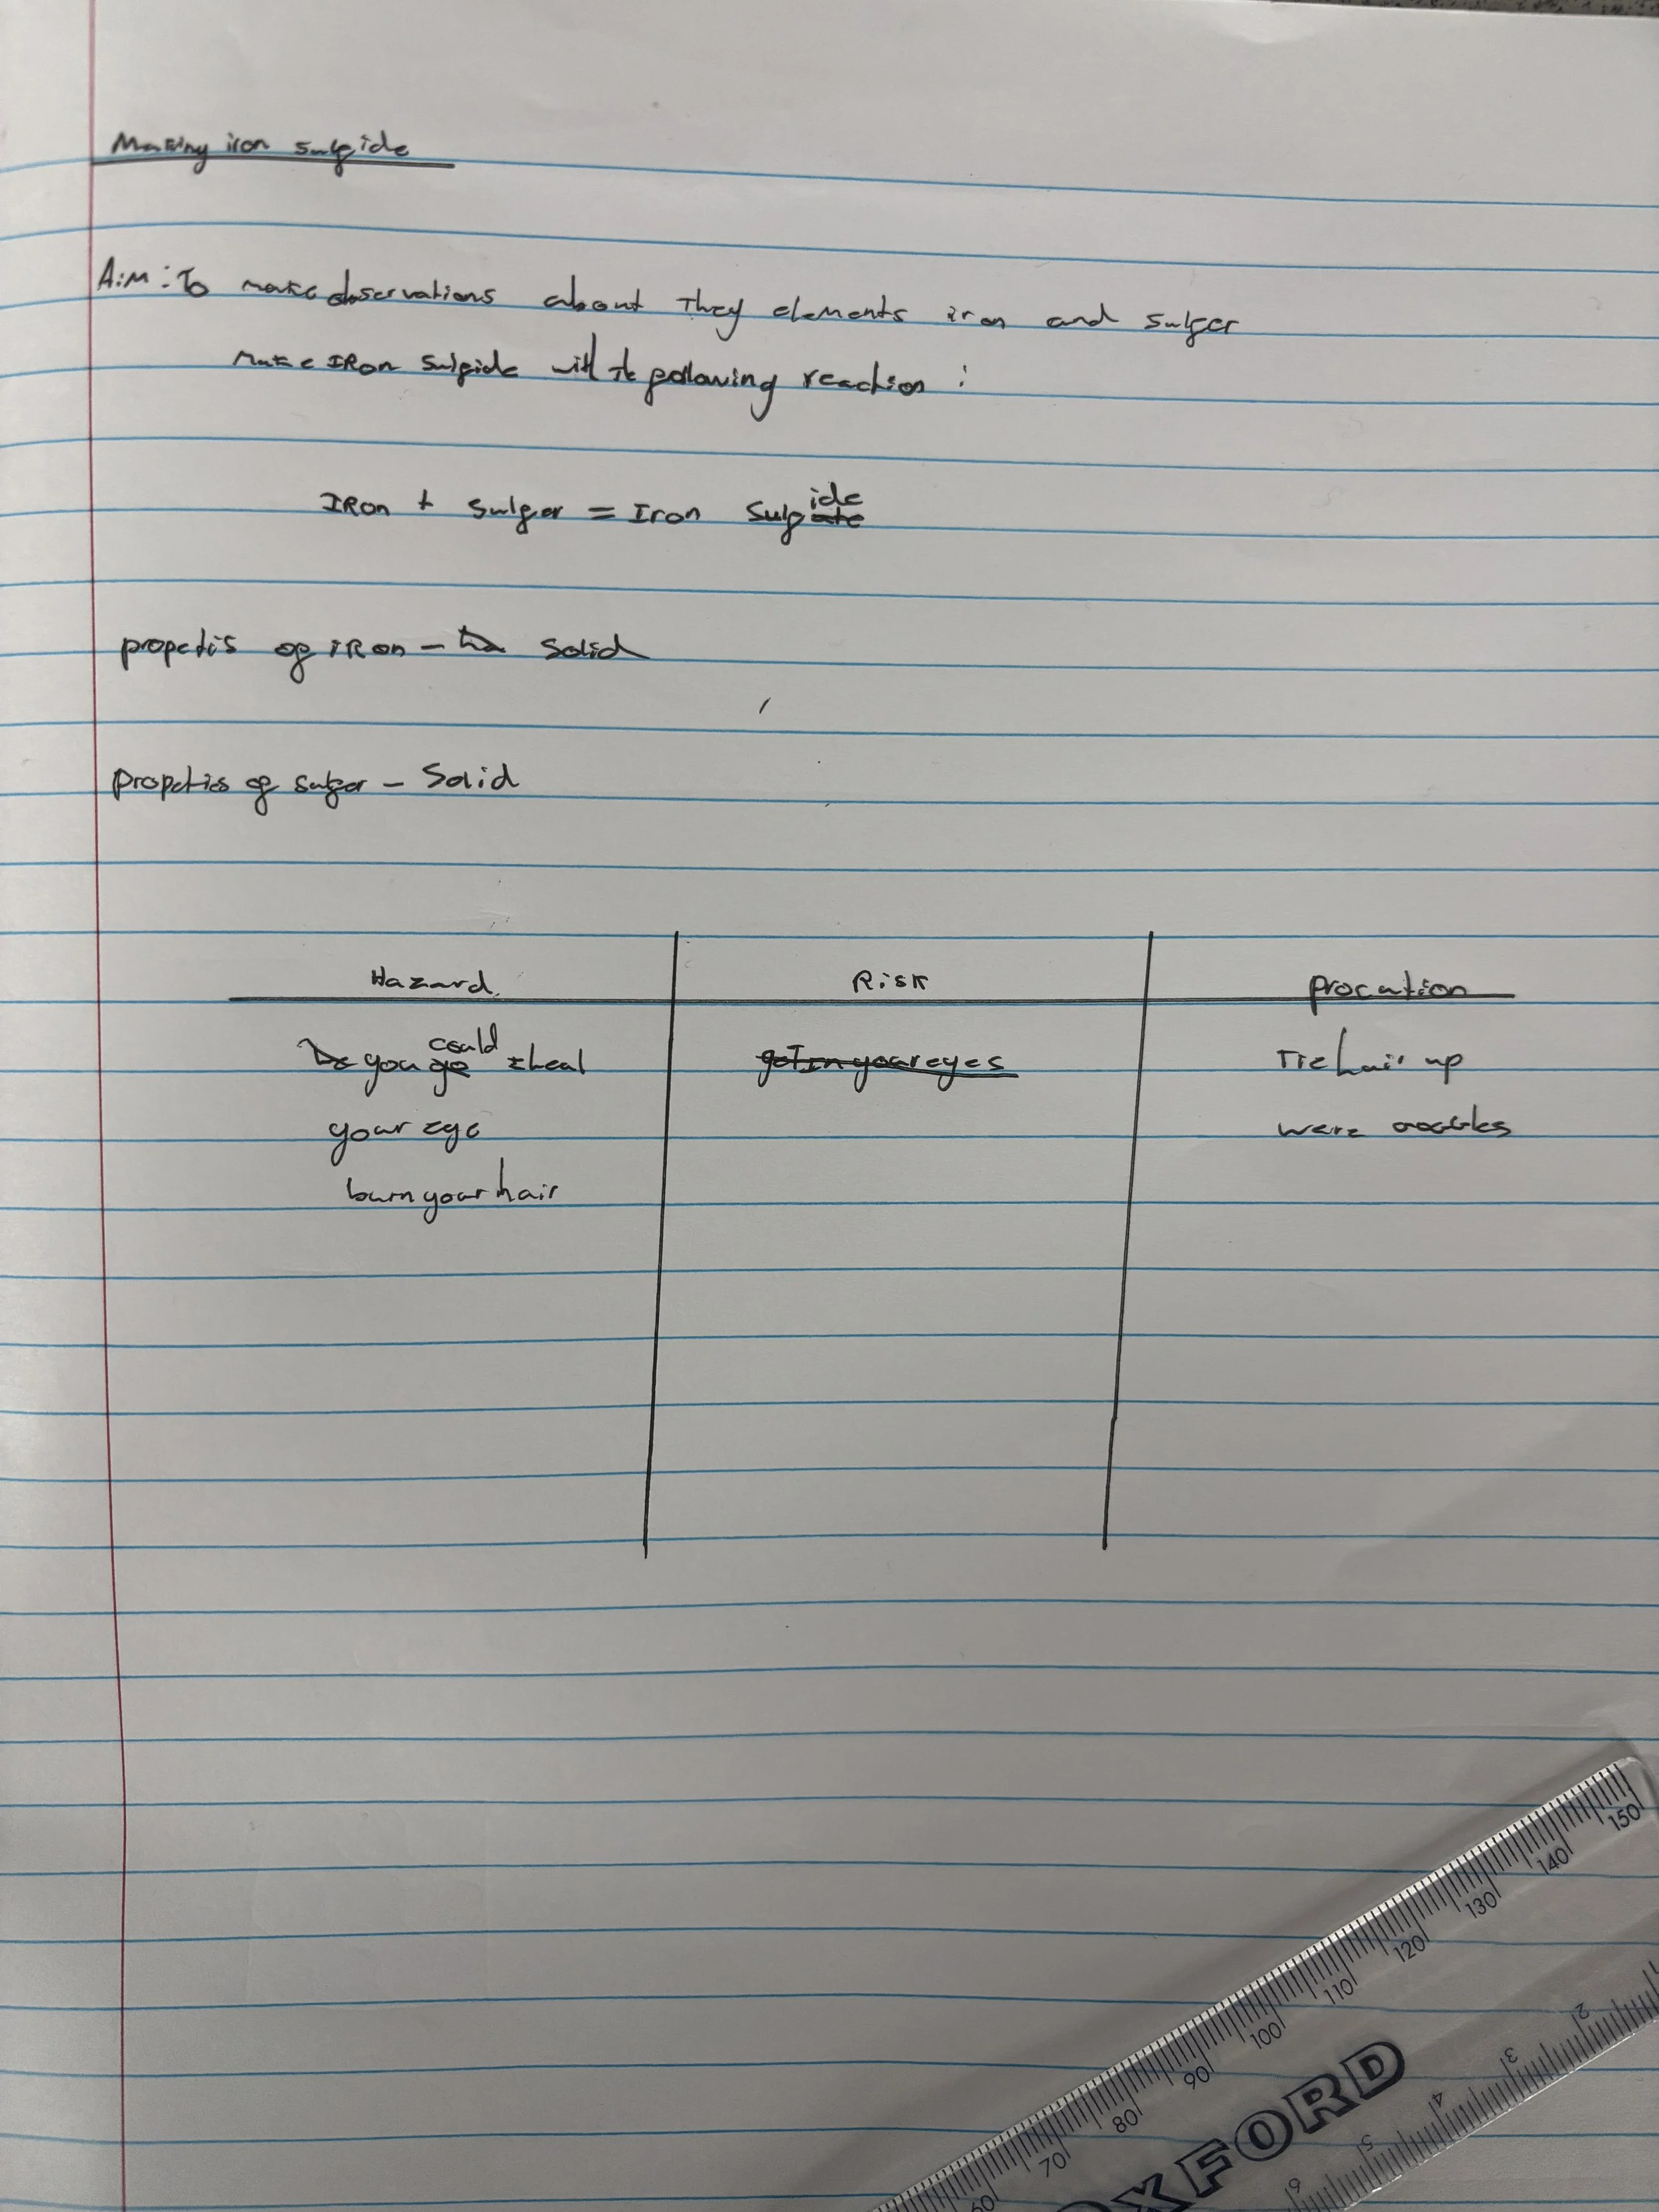 Making iron sulfide
Aim: To make observations about they elements iron and sulfer
make IRon Sulfide with the following reaction :
IRon + Sulfer = Iron Sulfide
propetis of iRon - Solid
Propeties of sulfer - Solid
Hazard Risk Procution
you could heal got in your eyes Tie hair up
your eye were goggles
burn your hair
150
140
130
120
110
100
90
80
70
60
2
3
4
5
6
OXFORD